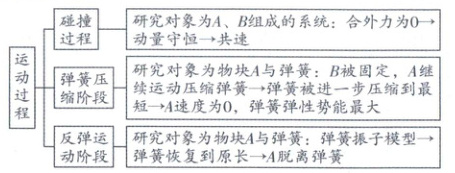 运动过程
碰撞
过程
研究对象为A、B组成的系统：合外力为0→
动量守恒→共速
弹簧压
缩阶段
研究对象为物块A与弹簧：B被固定，A继
续运动压缩弹簧→弹簧被进一步压缩到最
短→A速度为0，弹簧弹性势能最大
反弹运
动阶段
研究对象为物块A与弹簧：弹簧振子模型→
弹簧恢复到原长→A脱离弹簧